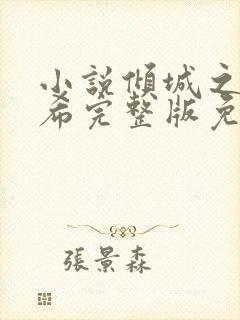 小説傾城之
希完整版免
張景森